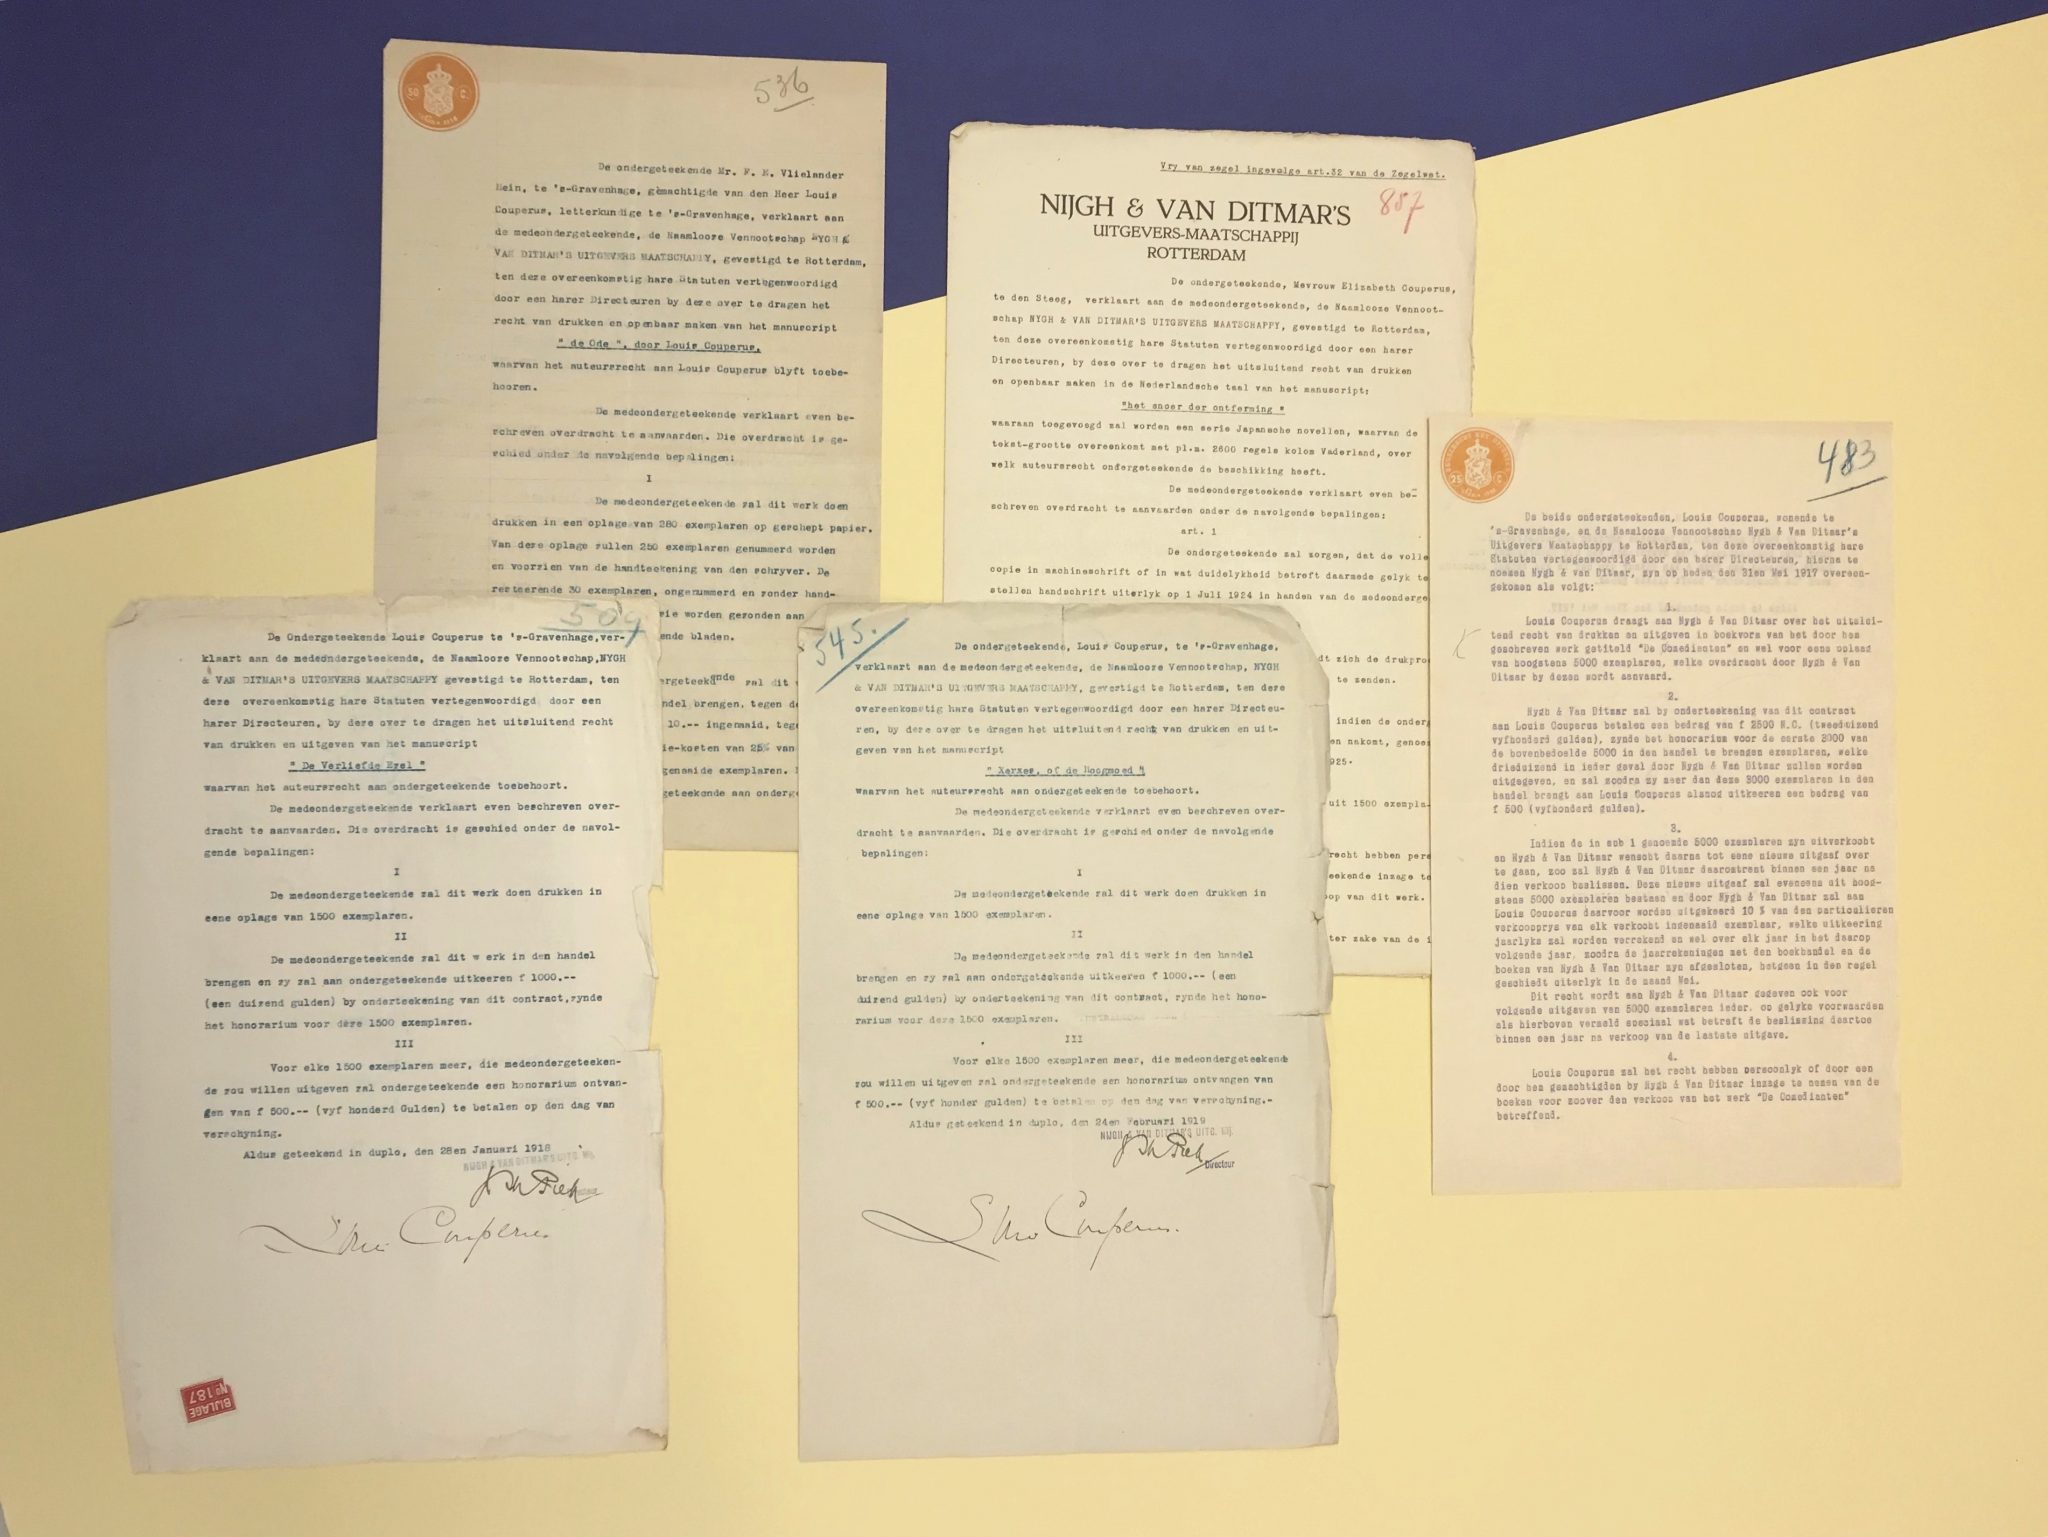 50 C.
536
De ondergeteekende Mr. F. E. Vlielander
Hein, te 's-Gravenhage, gemachtigde van den Heer Louis
Couperus, letterkundige te 's-Gravenhage, verklaart aan
de medeondergeteekende, de Naamlooze Vennootschap NYGH &
VAN DITMAR'S UITGEVERS MAATSCHAPPY, gevestigd te Rotterdam,
ten deze overeenkomstig hare Statuten vertegenwoordigd
door een harer Directeuren by deze over te dragen het
recht van drukken en openbaar maken van het manuscript
" de Ode ", door Louis Couperus,
waarvan het auteursrecht aan Louis Couperus blyft toebe-
hooren.
De medeondergeteekende verklaart even be-
schreven overdracht te aanvaarden. Die overdracht is ge-
schied onder de navolgende bepalingen:
I
De medeondergeteekende zal dit werk doen
drukken in een oplage van 280 exemplaren op geschept papier.
Van deze oplage zullen 250 exemplaren genummerd worden
en voorzien van de handteekening van den schryver. De
resteerende 30 exemplaren, ongenummerd en zonder hand-
wie worden gezonden aan
ende bladen.
ergeteekende zal dit
del brengen, tegen de
10.-- ingenaaid, tege
ie-kosten van 25% van
genaaide exemplaren.
geteekende aan onderg
Vry van zegel ingevolge art.32 van de Zegelwet.
NIJGH & VAN DITMAR'S
857
UITGEVERS-MAATSCHAPPIJ
ROTTERDAM
De ondergeteekende, Mevrouw Elizabeth Couperus,
te den Steeg, verklaart aan de medeondergeteekende, de Naamlooze Vennoot-
schap NYGH & VAN DITMAR'S UITGEVERS MAATSCHAPPY, gevestigd te Rotterdam,
ten deze overeenkomstig hare Statuten vertegenwoordigd door een harer
Directeuren, by deze over te dragen het uitsluitend recht van drukken
en openbaar maken in de Nederlandsche taal van het manuscript:
"het snoer der ontferming "
waaraan toegevoegd zal worden een serie Japansche novellen, waarvan de
tekst-grootte overeenkomt met pl.m. 2600 regels kolom Vaderland, over
welk auteursrecht ondergeteekende de beschikking heeft.
De medeondergeteekende verklaart even be-
schreven overdracht te aanvaarden onder de navolgende bepalingen:
art. 1
De ondergeteekende zal zorgen, dat de volle
copie in machineschrift of in wat duidelykheid betreft daarmede gelyk te
stellen handschrift uiterlyk op 1 Juli 1924 in handen van de medeonderge
dt zich de drukpro
te zenden.
indien de onderg
en nakomt, genoe
925.
uit 1500 exempla
recht hebben pers
eekende inzage te
oop van dit werk.
ter zake van de i
25 C
483
De beide ondergeteekenden, Louis Couperus, wonende te
's-Gravenhage, en de Naamlooze Vennootschap Nygh & Van Ditmar's
Uitgevers Maatschappy te Rotterdam, ten deze overeenkomstig hare
Statuten vertegenwoordigd door een harer Directeuren, hierna te
noemen Nygh & van Ditmar, zyn op heden den 31en Mei 1917 overeen-
gekomen als volgt:
1.
Louis Couperus draagt aan Nygh & Van Ditmar over het uitslui-
tend recht van drukken en uitgeven in boekvorm van het door hem
geschreven werk getiteld "De Comedianten" en wel voor eene oplaag
van hoogstens 5000 exemplaren, welke overdracht door Nygh & Van
Ditmar by dezen wordt aanvaard.
2.
Nygh & Van Ditmar zal by onderteekening van dit contract
aan Louis Couperus betalen een bedrag van f 2500 N.C. (tweeduizend
vyfhonderd gulden), zynde het honorarium voor de eerste 3000 van
de bovenbedoelde 5000 in den handel te brengen exemplaren, welke
drieduizend in ieder geval door Nygh & Van Ditmar zullen worden
uitgegeven, en zal zoodra zy meer dan deze 3000 exemplaren in den
handel brengt aan Louis Couperus alsnog uitkeeren een bedrag van
f 500 (vyfhonderd gulden).
3.
Indien de in sub 1 genoemde 5000 exemplaren zyn uitverkocht
en Nygh & Van Ditmar wenscht daarna tot eene nieuwe uitgaaf over
te gaan, zoo zal Nygh & Van Ditmar daaromtrent binnen een jaar na
dien verkoop beslissen. Deze nieuwe uitgaaf zal eveneens uit hoog-
stens 5000 exemplaren bestaan en door Nygh & Van Ditmar zal aan
Louis Couperus daarvoor worden uitgekeerd 10 % van den particulieren
verkoopprys van elk verkocht ingenaaid exemplaar, welke uitkeering
jaarlyks zal worden verrekend en wel over elk jaar in het daarop
volgende jaar, zoodra de jaarrekeningen met den boekhandel en de
boeken van Nygh & Van Ditmar zyn afgesloten, hetgeen in den regel
geschiedt uiterlyk in de maand Mei.
Dit recht wordt aan Nygh & Van Ditmar gegeven ook voor
volgende uitgaven van 5000 exemplaren ieder, op gelyke voorwaarden
als hierboven vermeld speciaal wat betreft de beslissing daartoe
binnen een jaar na verkoop van de laatste uitgave.
4.
Louis Couperus zal het recht hebben persoonlyk of door een
door hem gemachtigden by Nygh & Van Ditmar inzage te nemen van de
boeken voor zoover den verkoop van het werk "De Comedianten"
betreffend.
504
De Ondergeteekende Louis Couperus te 's-Gravenhage,ver-
klaart aan de medeondergeteekende, de Naamlooze Vennootschap,NYGH
& VAN DITMAR'S UITGEVERS MAATSCHAPPY gevestigd te Rotterdam, ten
deze overeenkomstig hare Statuten vertegenwoordigd door een
harer Directeuren, by deze over te dragen het uitsluitend recht
van drukken en uitgeven van het manuscript
" De Verliefde Ezel "
waarvan het auteursrecht aan ondergeteekende toebehoort.
De medeondergeteekende verklaart even beschreven over-
dracht te aanvaarden. Die overdracht is geschied onder de navol-
gende bepalingen:
I
De medeondergeteekende zal dit werk doen drukken in
eene oplage van 1500 exemplaren.
II
De medeondergeteekende zal dit w erk in den handel
brengen en zy zal aan ondergeteekende uitkeeren f 1000.--
(een duizend gulden) by onderteekening van dit contract,zynde
het honorarium voor deze 1500 exemplaren.
III
Voor elke 1500 exemplaren meer, die medeondergeteeken-
de zou willen uitgeven zal ondergeteekende een honorarium ontvan-
gen van f 500.-- (vyf honderd Gulden) te betalen op den dag van
verschyning.
Aldus geteekend in duplo, den 28en Januari 1918
NIJGH & VAN DITMAR'S UITG. MIJ.
Louis Couperus.
BIJLAGE
No 187
545.
De ondergeteekende, Louis Couperus, te 's-Gravenhage,
verklaart aan de medeondergeteekende, de Naamlooze Vennootschap, NYGH
& VAN DITMAR'S UITGEVERS MAATSCHAPPY, gevestigd te Rotterdam, ten deze
overeenkomstig hare Statuten vertegenwoordigd door een harer Directeu-
ren, by deze over te dragen het uitsluitend recht van drukken en uit-
geven van het manuscript
" Xerxes, of de Hoogmoed "
waarvan het auteursrecht aan ondergeteekende toebehoort.
De medeondergeteekende verklaart even beschreven over-
dracht te aanvaarden. Die overdracht is geschied onder de navolgende
bepalingen:
I
De medeondergeteekende zal dit werk doen drukken in
eene oplage van 1500 exemplaren.
II
De medeondergeteekende zal dit werk in den handel
brengen en zy zal aan ondergeteekende uitkeeren f 1000.-- (een
duizend gulden) by onderteekening van dit contract, zynde het hono-
rarium voor deze 1500 exemplaren.
III
Voor elke 1500 exemplaren meer, die medeondergeteekende
zou willen uitgeven zal ondergeteekende een honorarium ontvangen van
f 500.-- (vyf honder gulden) te betalen op den dag van verschyning.-
Aldus geteekend in duplo, den 24en Februari 1919
NIJGH & VAN DITMAR'S UITG. MIJ.
Directeur
Louis Couperus.